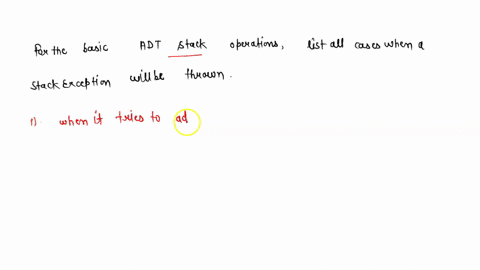 For the basic ADT stack operations, list all cases when a
stack Exception will be thrown.
1) when it tries to ad